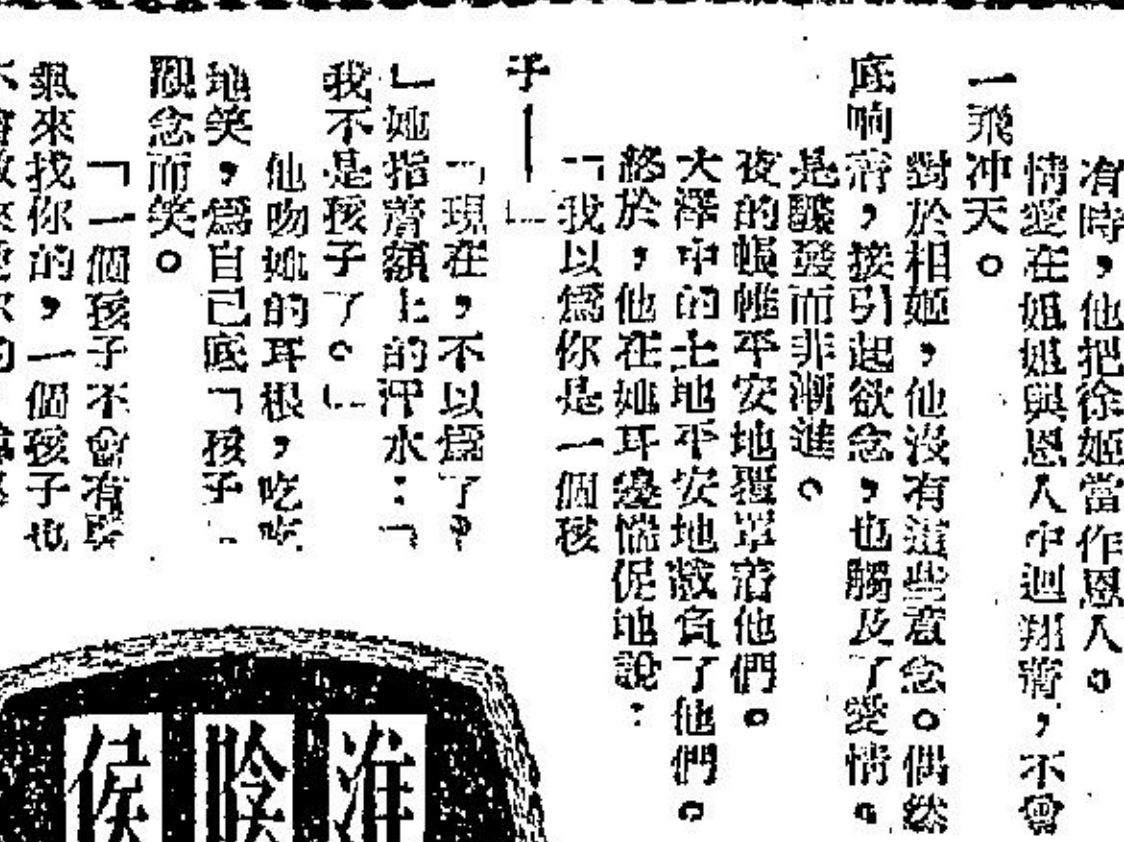 有時,他把徐姬當作恩人。
情愛在姐姐與恩人中迴翔着,不會
一飛冲天。
對於相姬,他沒有這些意念。偶然
底响着,接引起欲念,也觸及了愛情。
是驟發而非漸進。
夜的帳帷平安地覆罩着他們。
大澤中的土地平安地戴負了他們。
終於,他在她耳邊惴促地說:
「我以爲你是一個孩
子——」
「現在,不以爲了?
」她指着額上的汗水:「
我不是孩子了。」
他吻她的耳根,吃吃
地笑,爲自己底「孩子」
觀念而笑。
「一個孩子不會有與
來找你的,一個孩子也
淮陰侯